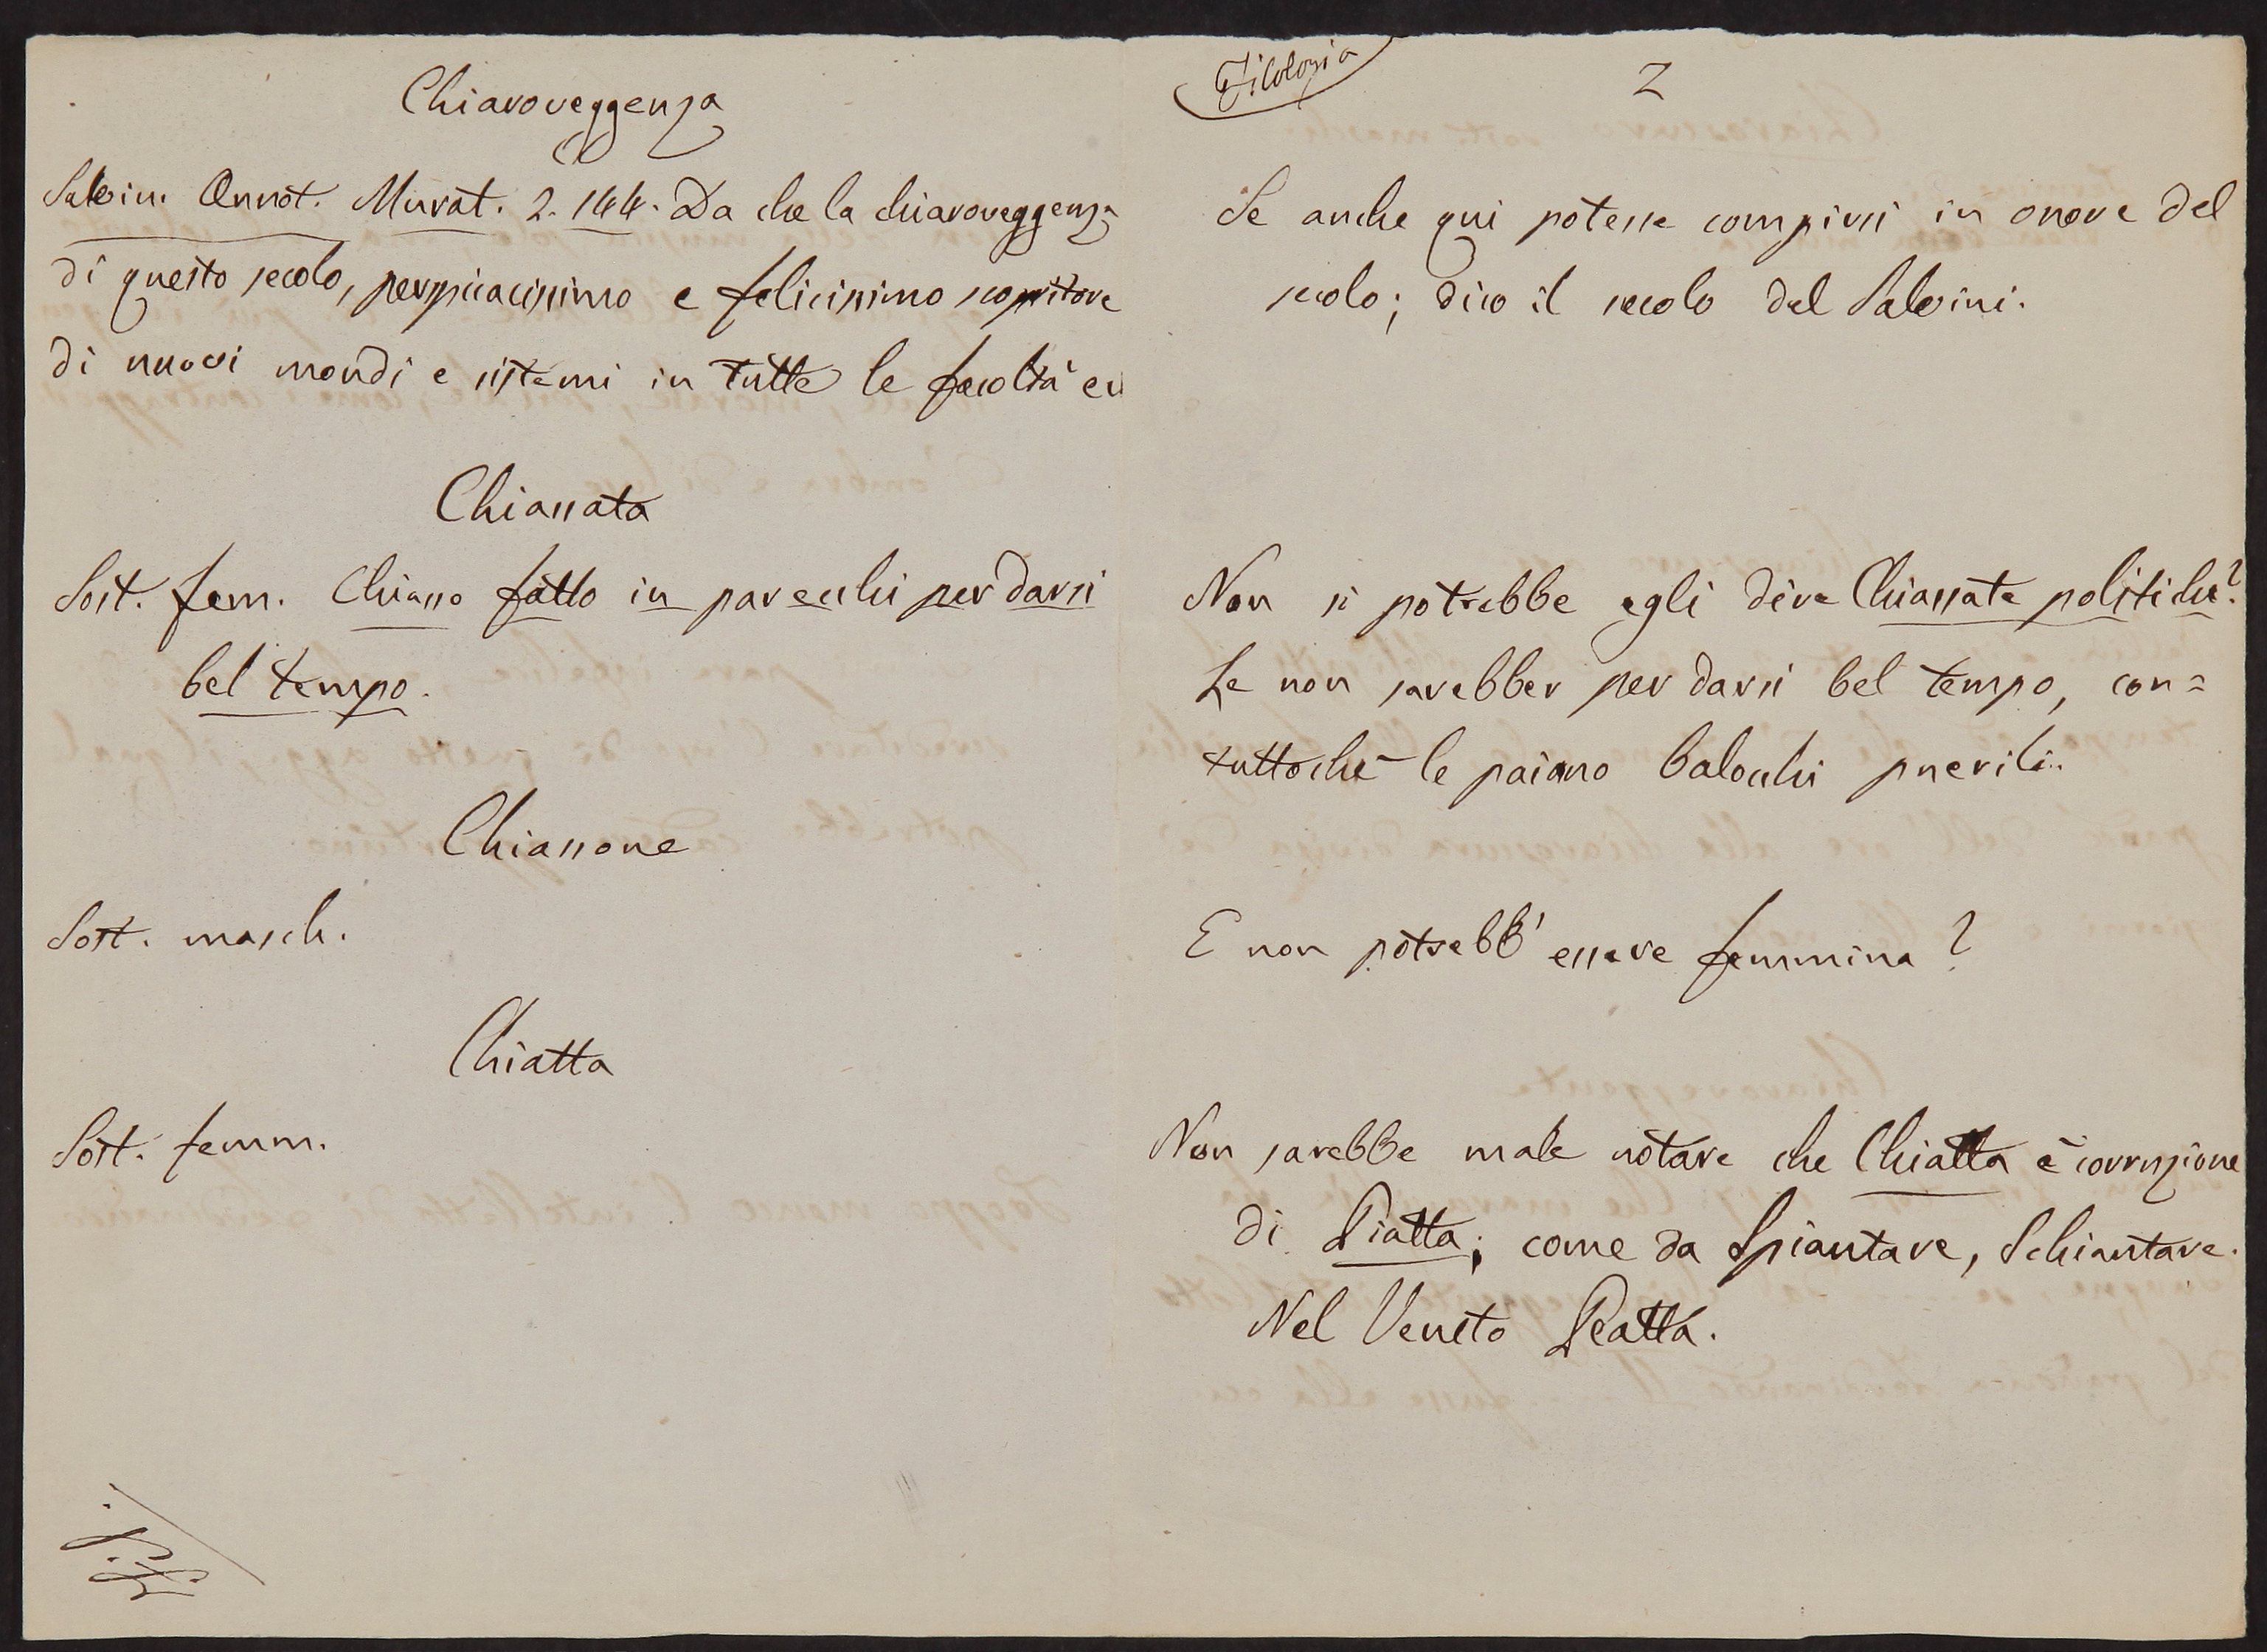 Chiaroveggenza
Salvin. Annot. Murat. 2. 144. Da che la chiaroveggenza
di questo secolo, perspicacissimo e felicissimo scopritore
di nuovi mondi e sistemi in tutte le facoltà ec
Chiassata
Sost. fem. Chiasso fatto in parecchi per darsi
bel tempo.
Chiassone
Sost. masch.
Chiatta
Sost. femm.
Filologia
2
Se anche qui potesse compirsi in onore del
secolo; dico il secolo del Salvini.
Non si potrebbe egli dire Chiassate politiche?
Le non sarebber per darsi bel tempo, con=
tuttochè le paiano balocchi puerili.
E non potrebb' essere femmina?
Non sarebbe male notare che Chiatta è corruzione
di Piatta; come da Spiantare, Schiantare.
Nel Veneto Peatta.